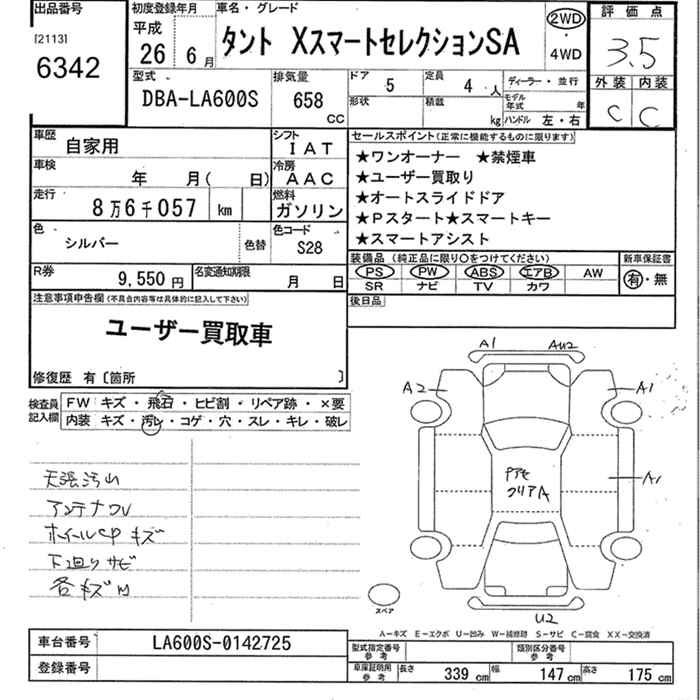 出品番号
[2113]
6342
初度登録年月
平成
26年 6月
車名・グレード
タント XスマートセレクションSA
2WD
・
4WD
評価点
3.5
外装 内装
C C
型式
DBA-LA600S
排気量
658
CC
ドア 5
定員 4人
形状
積載 kg
ディーラー・並行
モデル年式 年
ハンドル 左・右
車歴 自家用
シフト IAT
車検 年 月( 日)
冷房 AAC
走行 8万6千057 km
燃料 ガソリン
色 シルバー
色替
色コード S28
R券 9,550円
名変通知期限 月 日
セールスポイント(正常に機能するものに限ります)
★ワンオーナー ★禁煙車
★ユーザー買取り
★オートスライドドア
★Pスタート★スマートキー
★スマートアシスト
装備品 (純正品に限り○をつけてください)
PS PW ABS エアB AW
SR ナビ TV カワ
新車保証書
有・無
後日品
注意事項申告欄(不具合内容等は具体的に記入して下さい)
ユーザー買取車
修復歴 有〔箇所 〕
検査員記入欄
FW キズ・飛石・ヒビ割・リペア跡・×要
内装 キズ・汚レ・コゲ・穴・スレ・キレ・破レ
天張汚レ
アンテナ
ホイールCPキズ
下廻りサビ
各キズ
A1 AU2
A2 A1
A1
クリアA
スペア
U2
A-キズ E-エクボ U-凹み W-補修跡 S-サビ C-腐食 XX-交換済
車台番号 LA600S-0142725
登録番号
型式指定番号 参考
類別区分番号 参考
車庫証明用 参考
長さ 339cm 幅 147cm 高さ 175cm